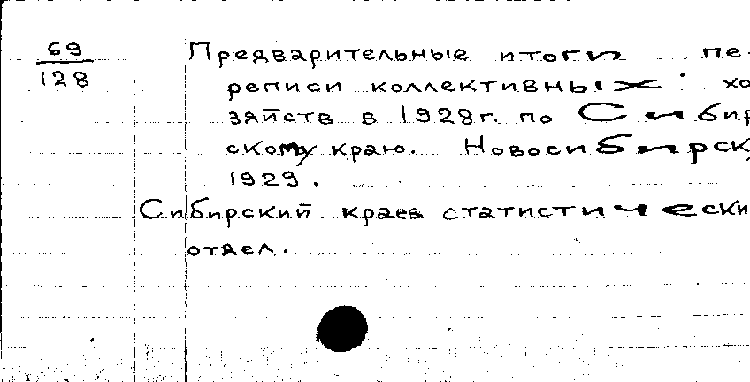 69
128
Предварительные итоги пе-
реписи коллективных хо
зяйств в 1928 г. по Сибир
скому краю. Новосибирск,
1929.
Сибирский краев статистически
отдел.